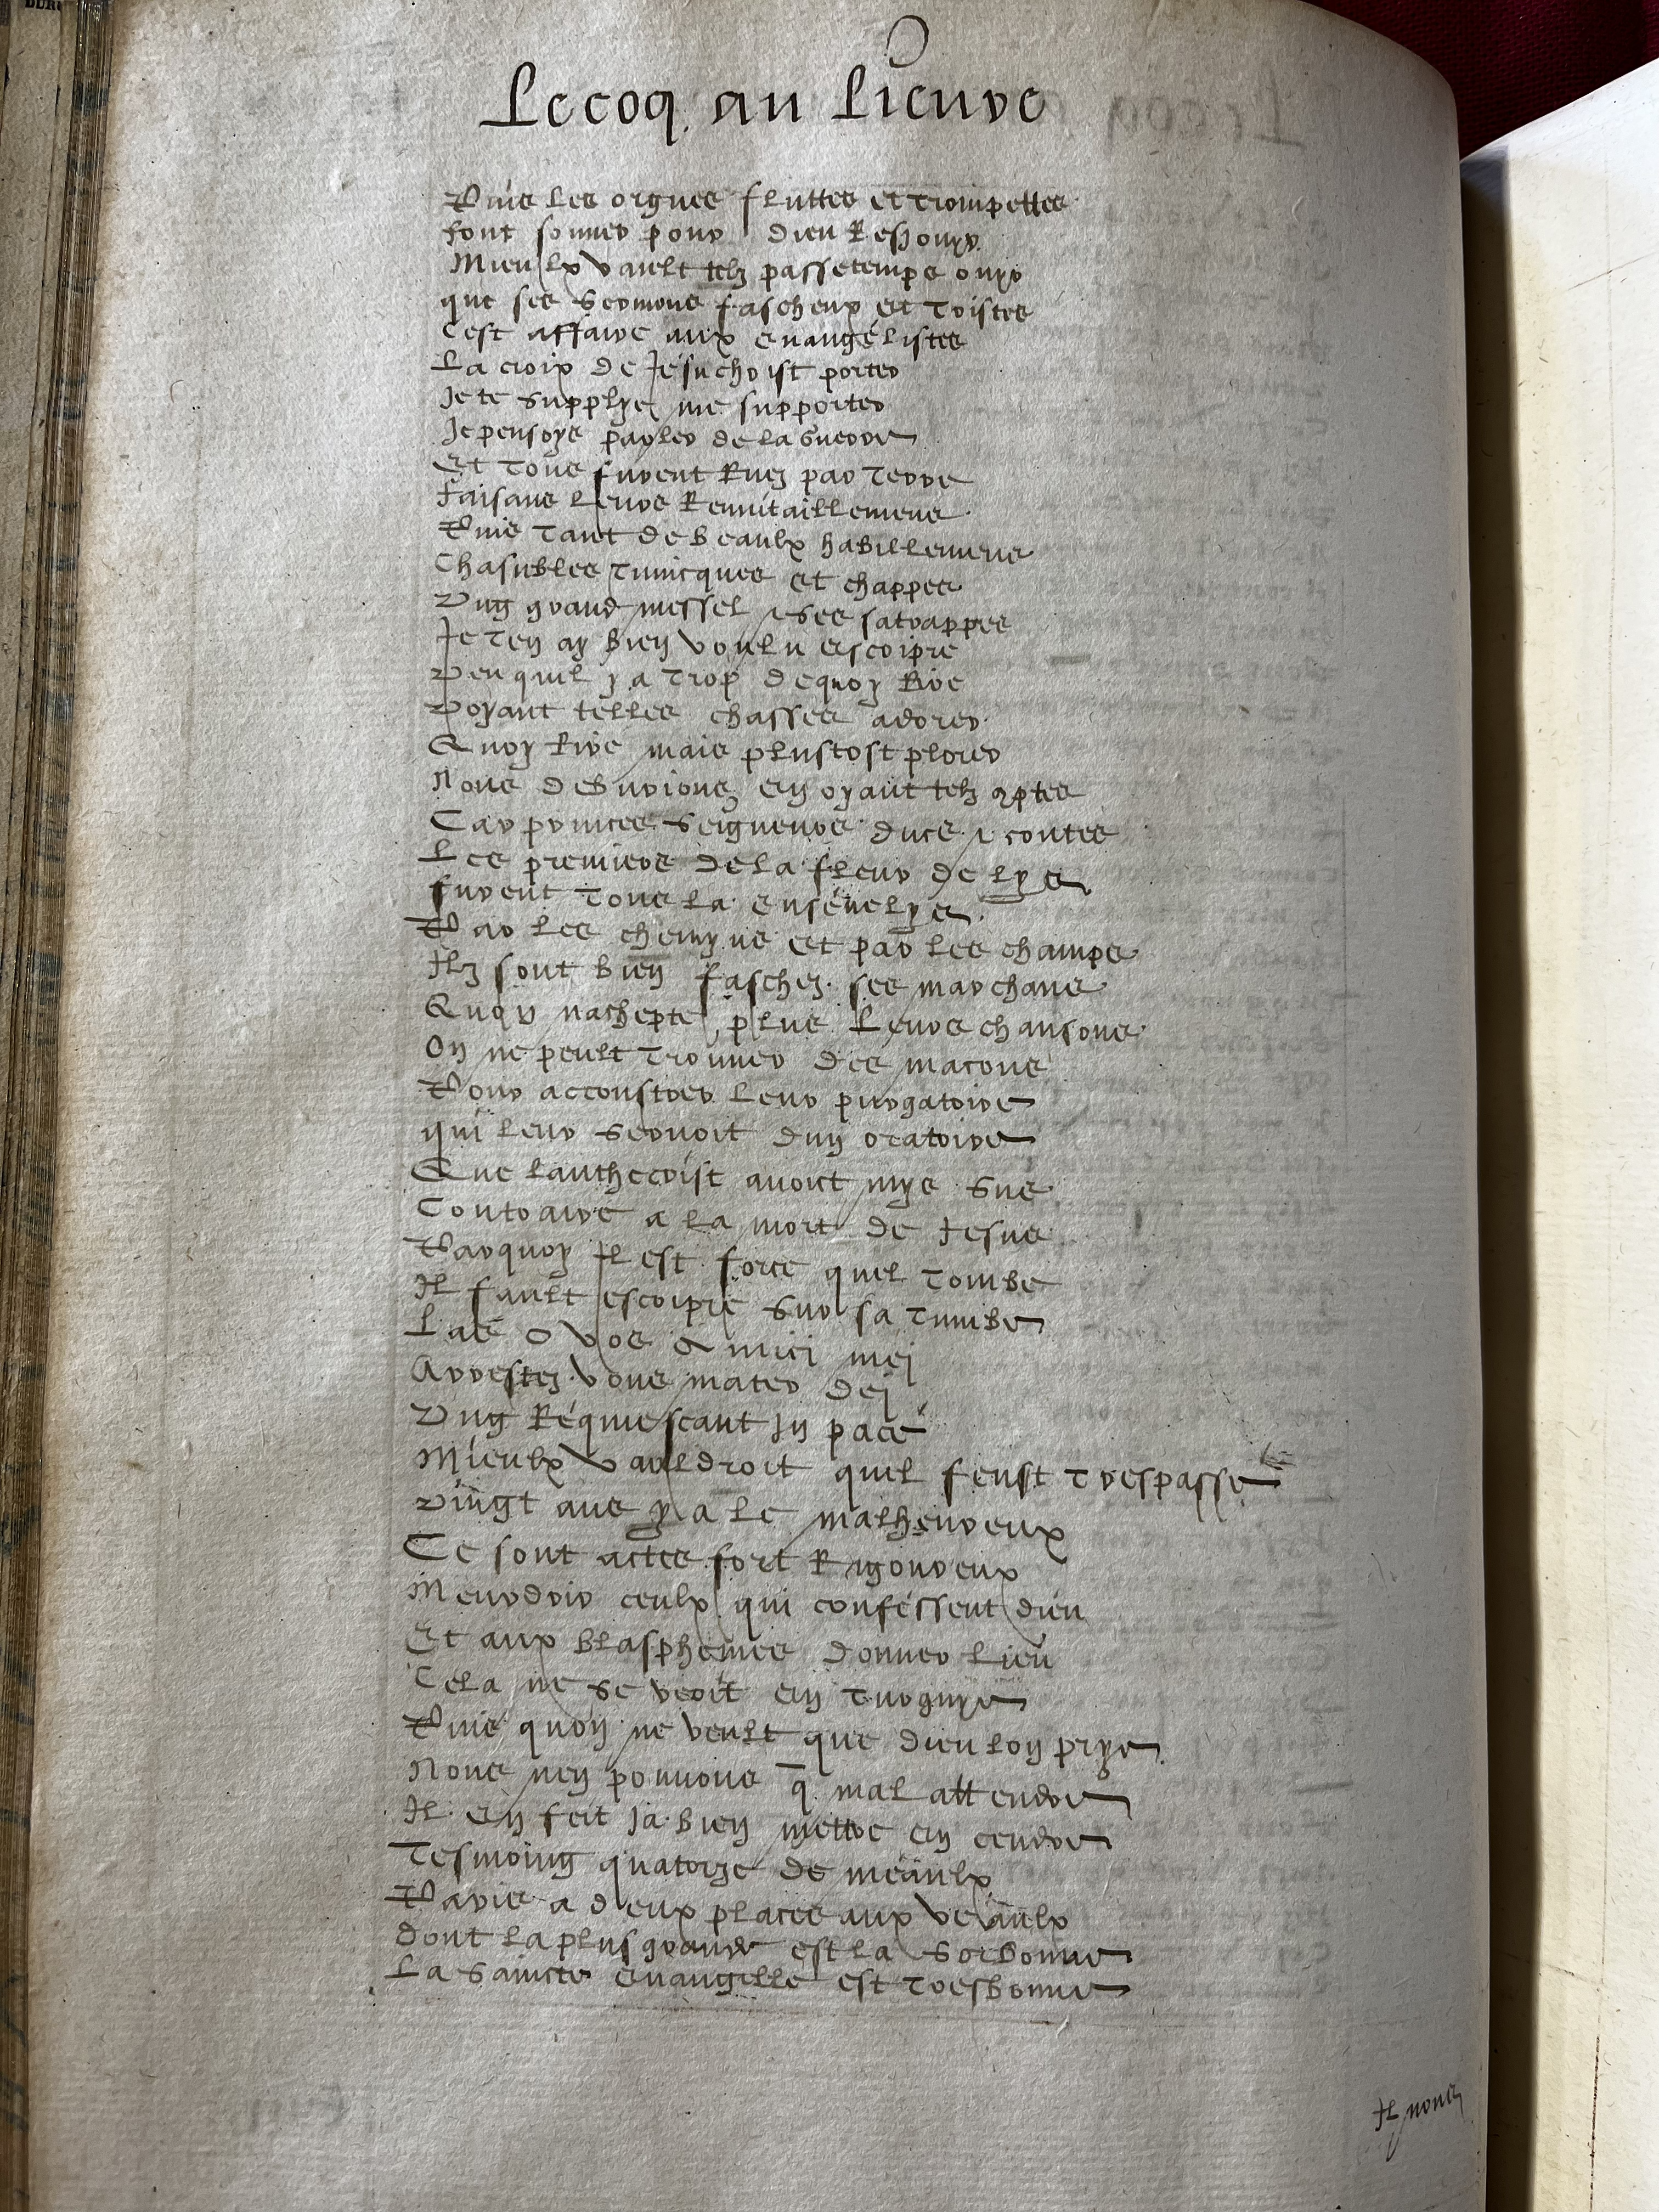 Le coq au Lieure
Puis les orgues fluttes et trompettes
font sonner pour dieu Resiouyr
Mieulx vault telz passetemps ouyr
que ses sermons fascheux et tristes
Cest affaire aux euangélistes
La croix de Jésuchrist porter
Je te supplye me supporter
Je pensoys parler de la guerre
Et tous furent Ruez par terre
faisans leurs Reuuitaillemens
Puis tant de beaulx habillemens
Chasubles tunicques et chappes
Ung grand messel & ses satrappes
Je ten ay bien voulu escripre
Peu quil y a trop dequoy Rire
Voyant telles chasses adorer
Quoy Rire mais plustost plorer
Nous deburions en oyant telz comptes
Car princes seigneurs ducs & contes
Les premiers de la fleur de lys
furent tous la enséuelys
Par les chemyns et par les champs
Ilz sont bien faschez ses marchans
Quon nachepte plus leurs chansons
On ne peult trouuer des macons
Pour accoustrer leur purgatoire
qui leur seruoit dun oratoire
Que lanthecrist auoit mys sus
Contraire a la mort de Jesus
Parquoy Il est force quel tombe
Il fault escripre sur sa tumbe
Las o vos Amici mej
Arrestez vous mater dej
Ung Réquiescant In pacé
Mieulx vauldroit quil feust trespasse
Vingt ans y a le malheureux
Ce sont actes fort Rigoureux
Meurdrir ceulx qui conféssent dieu
Et aux blasphemes donner lieu
Cela ne se veoit en turquye
Puis quon ne veult que dieu lon prye
Nous nen pouuons q̄ mal attendre
Il en feit Ja bien mettre en cendre
Tesmoing quatorze de meaulx
Paris a deux places aux veaulx
dont la plus grande est la Sorbonne
La saincte éuangille est tresbonne
Il nous